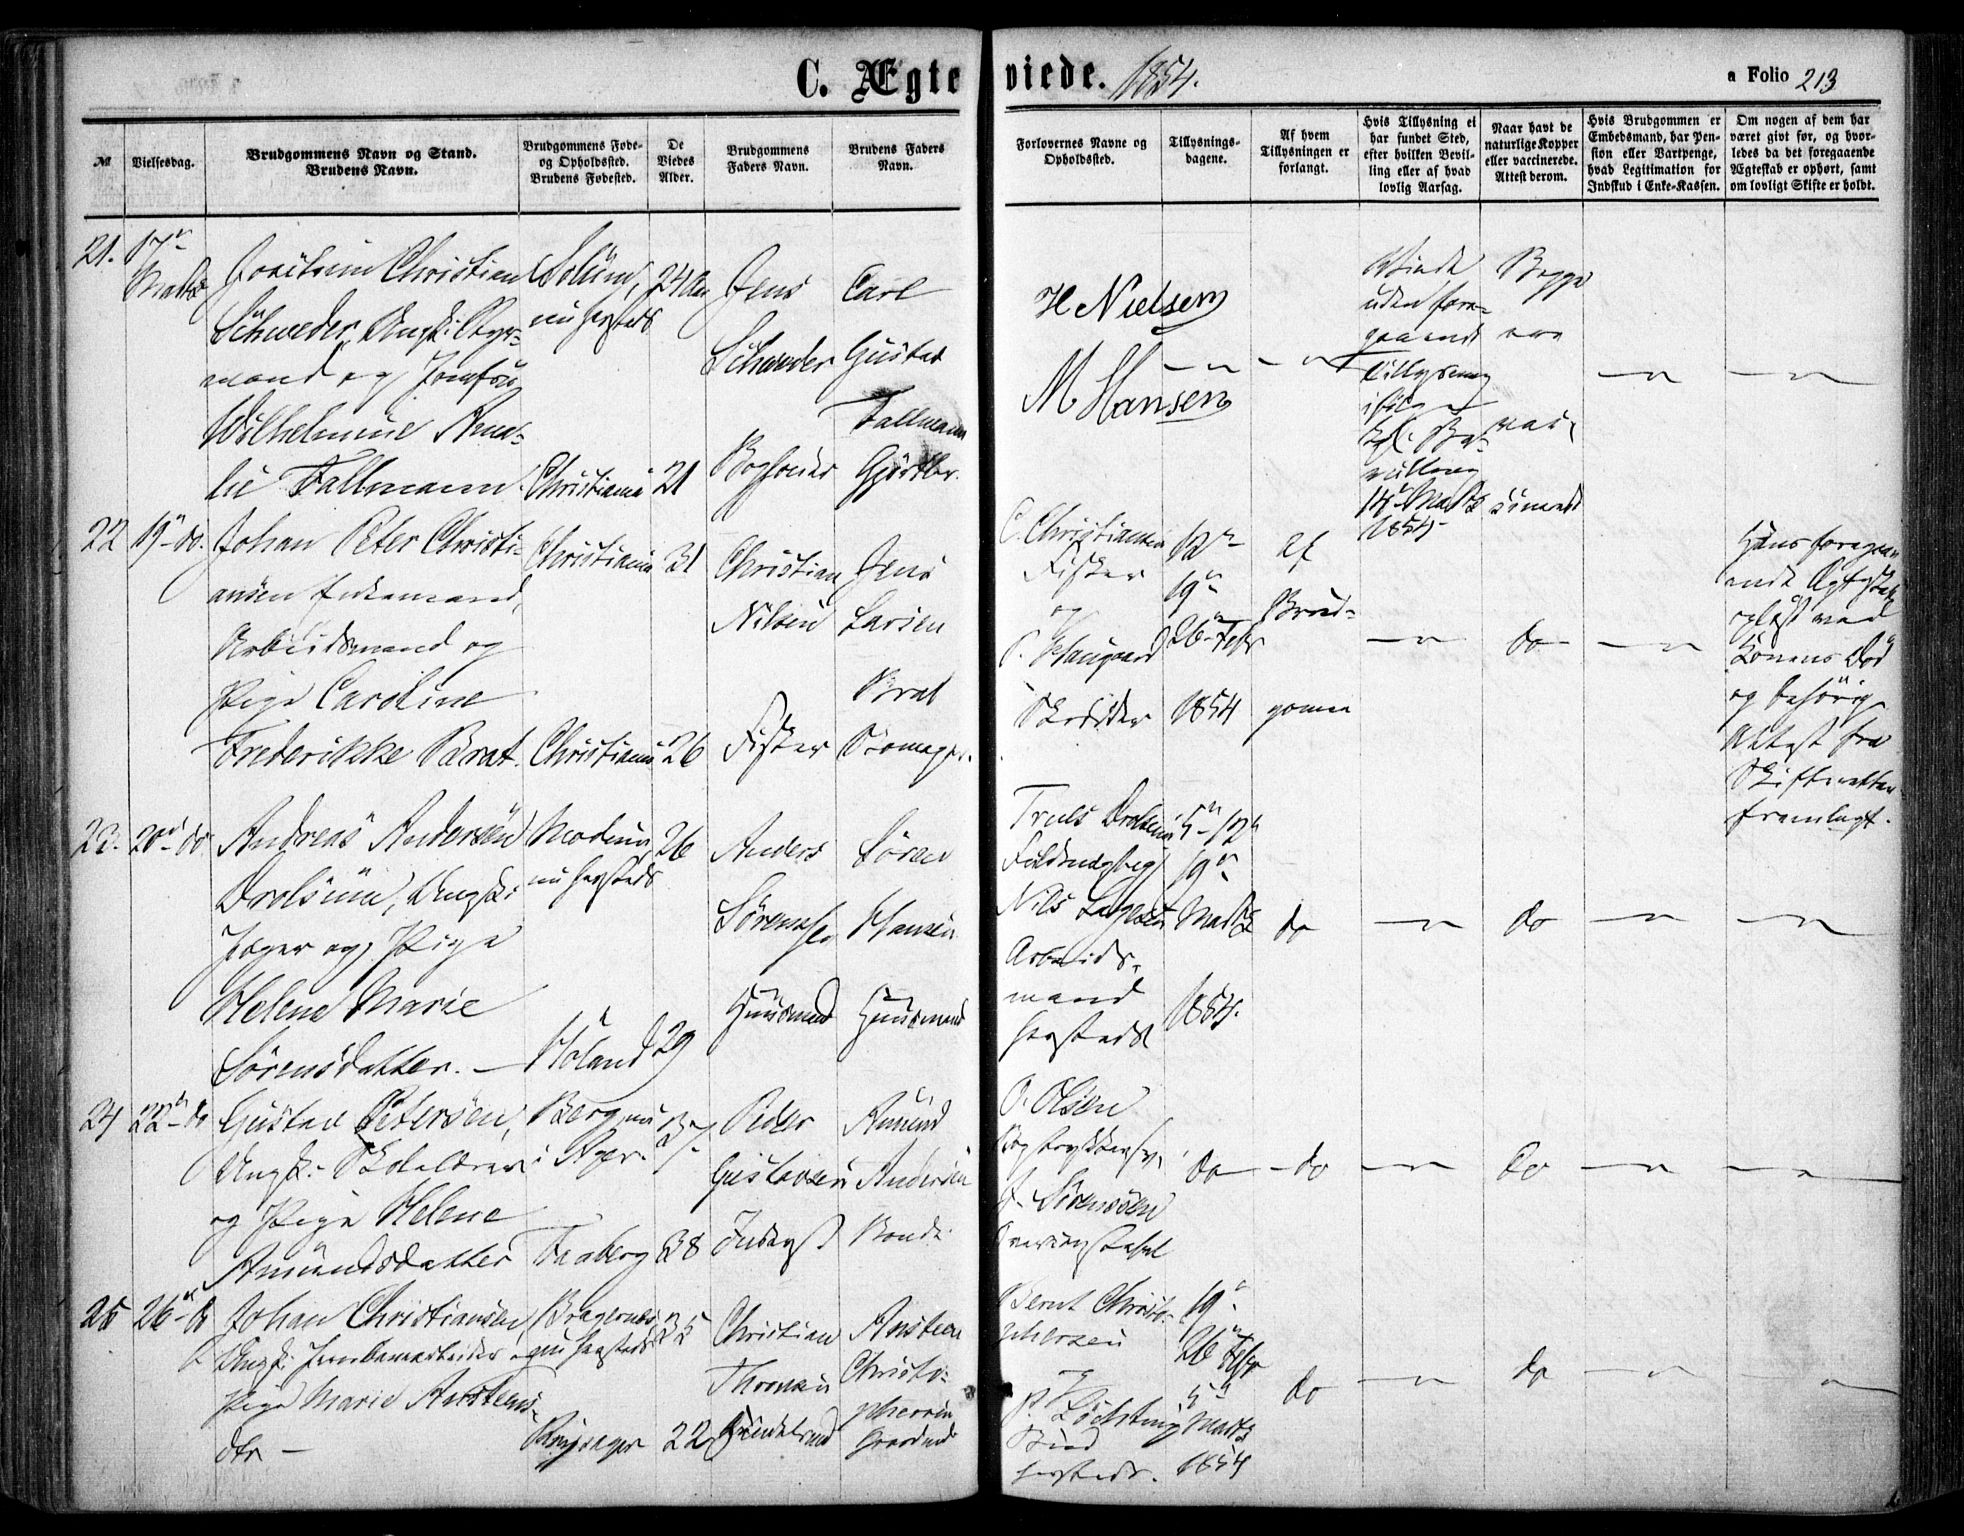 C. Ægteviede. 1854.
a Folio 213
№
Vielsesdag.
Brudgommens Navn og Stand.
Brudens Navn.
Brudgommens Føde-
og Opholdssted.
Brudens Fødested.
De
Viedes
Alder.
Brudgommens
Faders Navn.
Brudens Faders
Navn.
Forlovernes Navne og
Opholdssted.
Tillysnings-
dagene.
Af hvem
Tillysningen er
forlangt.
Hvis Tillysning ei
har fundet Sted,
efter hvilken Bevil-
ling eller af hvad
lovlig Aarsag.
Naar havt de
naturlige Kopper
eller vaccinerede.
Attest derom.
Hvis Brudgommen er
Embedsmand, har Pen-
sion eller Vartpenge,
hvad Legitimation for
Indskud i Enke-Kassen.
Om nogen af dem har
været givt før, og hvor-
ledes da det foregaaende
Ægteskab er ophørt, samt
om lovligt Skifte er holdt.
21.
17de
Marts
Joachim Christian
Schweder, Ungk: Styr-
mand og Jomfru
Wilhelmine Ama-
lie Fallmann
nu hersteds
Christiania
24 Aar
21
Jens
Schweder
Carl
Gustav
Fallmann
Gjørtler.
H Nielsen
M Hansen
Viede
uden fore-
gaaende
Tillysning
ifølge
Kgl. Be-
villing
Marts
1854
Begge
vac-
cinerede
22
19de do.
Johan Peter Christi-
ansen Enkemand,
Arbeidsmand og
Pige Caroline
Frederikke Brat.
Christiania
Christiania
31
26
Christian
Nilsen
Fisker
Jens
Larsen
Brat
Skomager.
C. Christiansen
Fisker
og
P. Haugaard
Skrædder
12te
19de
26de Febr
1854
af
Brud-
gommen
do
Hans foregaa-
ende Ægteskab
opløst ved
Konens Død
og behørig
Attest fra
Skifteretten
fremlagt.
23.
20de do
Andreas Andersen
Drolsum, Ungk:
Jæger og Pige
Helene Marie
Sørensdatter.
Modum
nu hersteds
Høland
26
29
Anders
Huusmand
Søren
Hansen
Huusmand
Truls Drolsum
Nils Larsen
Arbeids-
mand
hersteds
5te 12te
19de
Marts
1854.
do
do
24
22de do
Gustav Petersen,
Ungk: Skolelærer
og Pige Helene
Amundsdatter
Berg, nu
i Ager
Faaberg
37
38
Peder
Gustavsen
Inderst
Amund
Andersen
Bonde
O. Olsen
Bogtrykkersv.
J. Sørensen
do
do
do
25
26de do
Johan Christiansen
Ungk: Jernbanearbeider og
Pige Marie Anstens-
dtr
Bragernes
nu hersteds
35
22
Christian
Thronsen
Ansteen
Christo-
phersen
Gaardmd
Bernt Christo-
phersen
og
hersteds.
19de
26de Febr
5te
Marts
1854
do
do